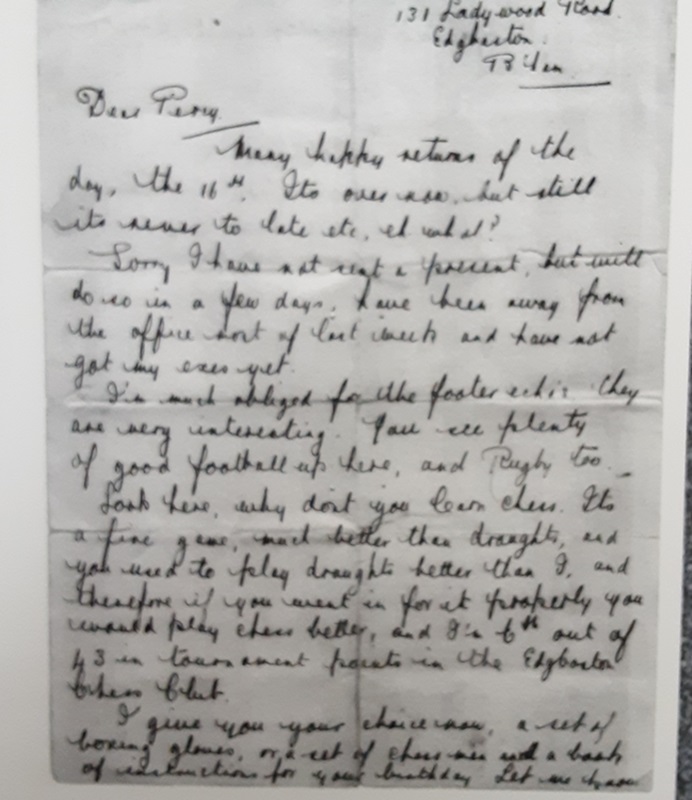 131 Ladywood Road.
Edgbaston.
B'ham
Dear Percy.
Many happy returns of the
day, the 16th. Its over now, but still
its never to late etc, eh what?
Sorry I have not sent a present, but will
do so in a few days, have been away from
the office sort of last week and have not
got my exes yet.
I'm much obliged for the footer echo's they
are very interesting. You see plenty
of good football up here, and Rugby too.
Look here, why dont you learn chess. Its
a fine game, much better than draughts, and
you used to play draughts better than I, and
therefore if you went in for it properly you
would play chess better, and I'm 6th out of
43 in tournament points in the Edgbaston
Chess Club.
I give you your choice now, a set of
boxing gloves, or a set of chess men and a book
of instructions for your birthday Let me know